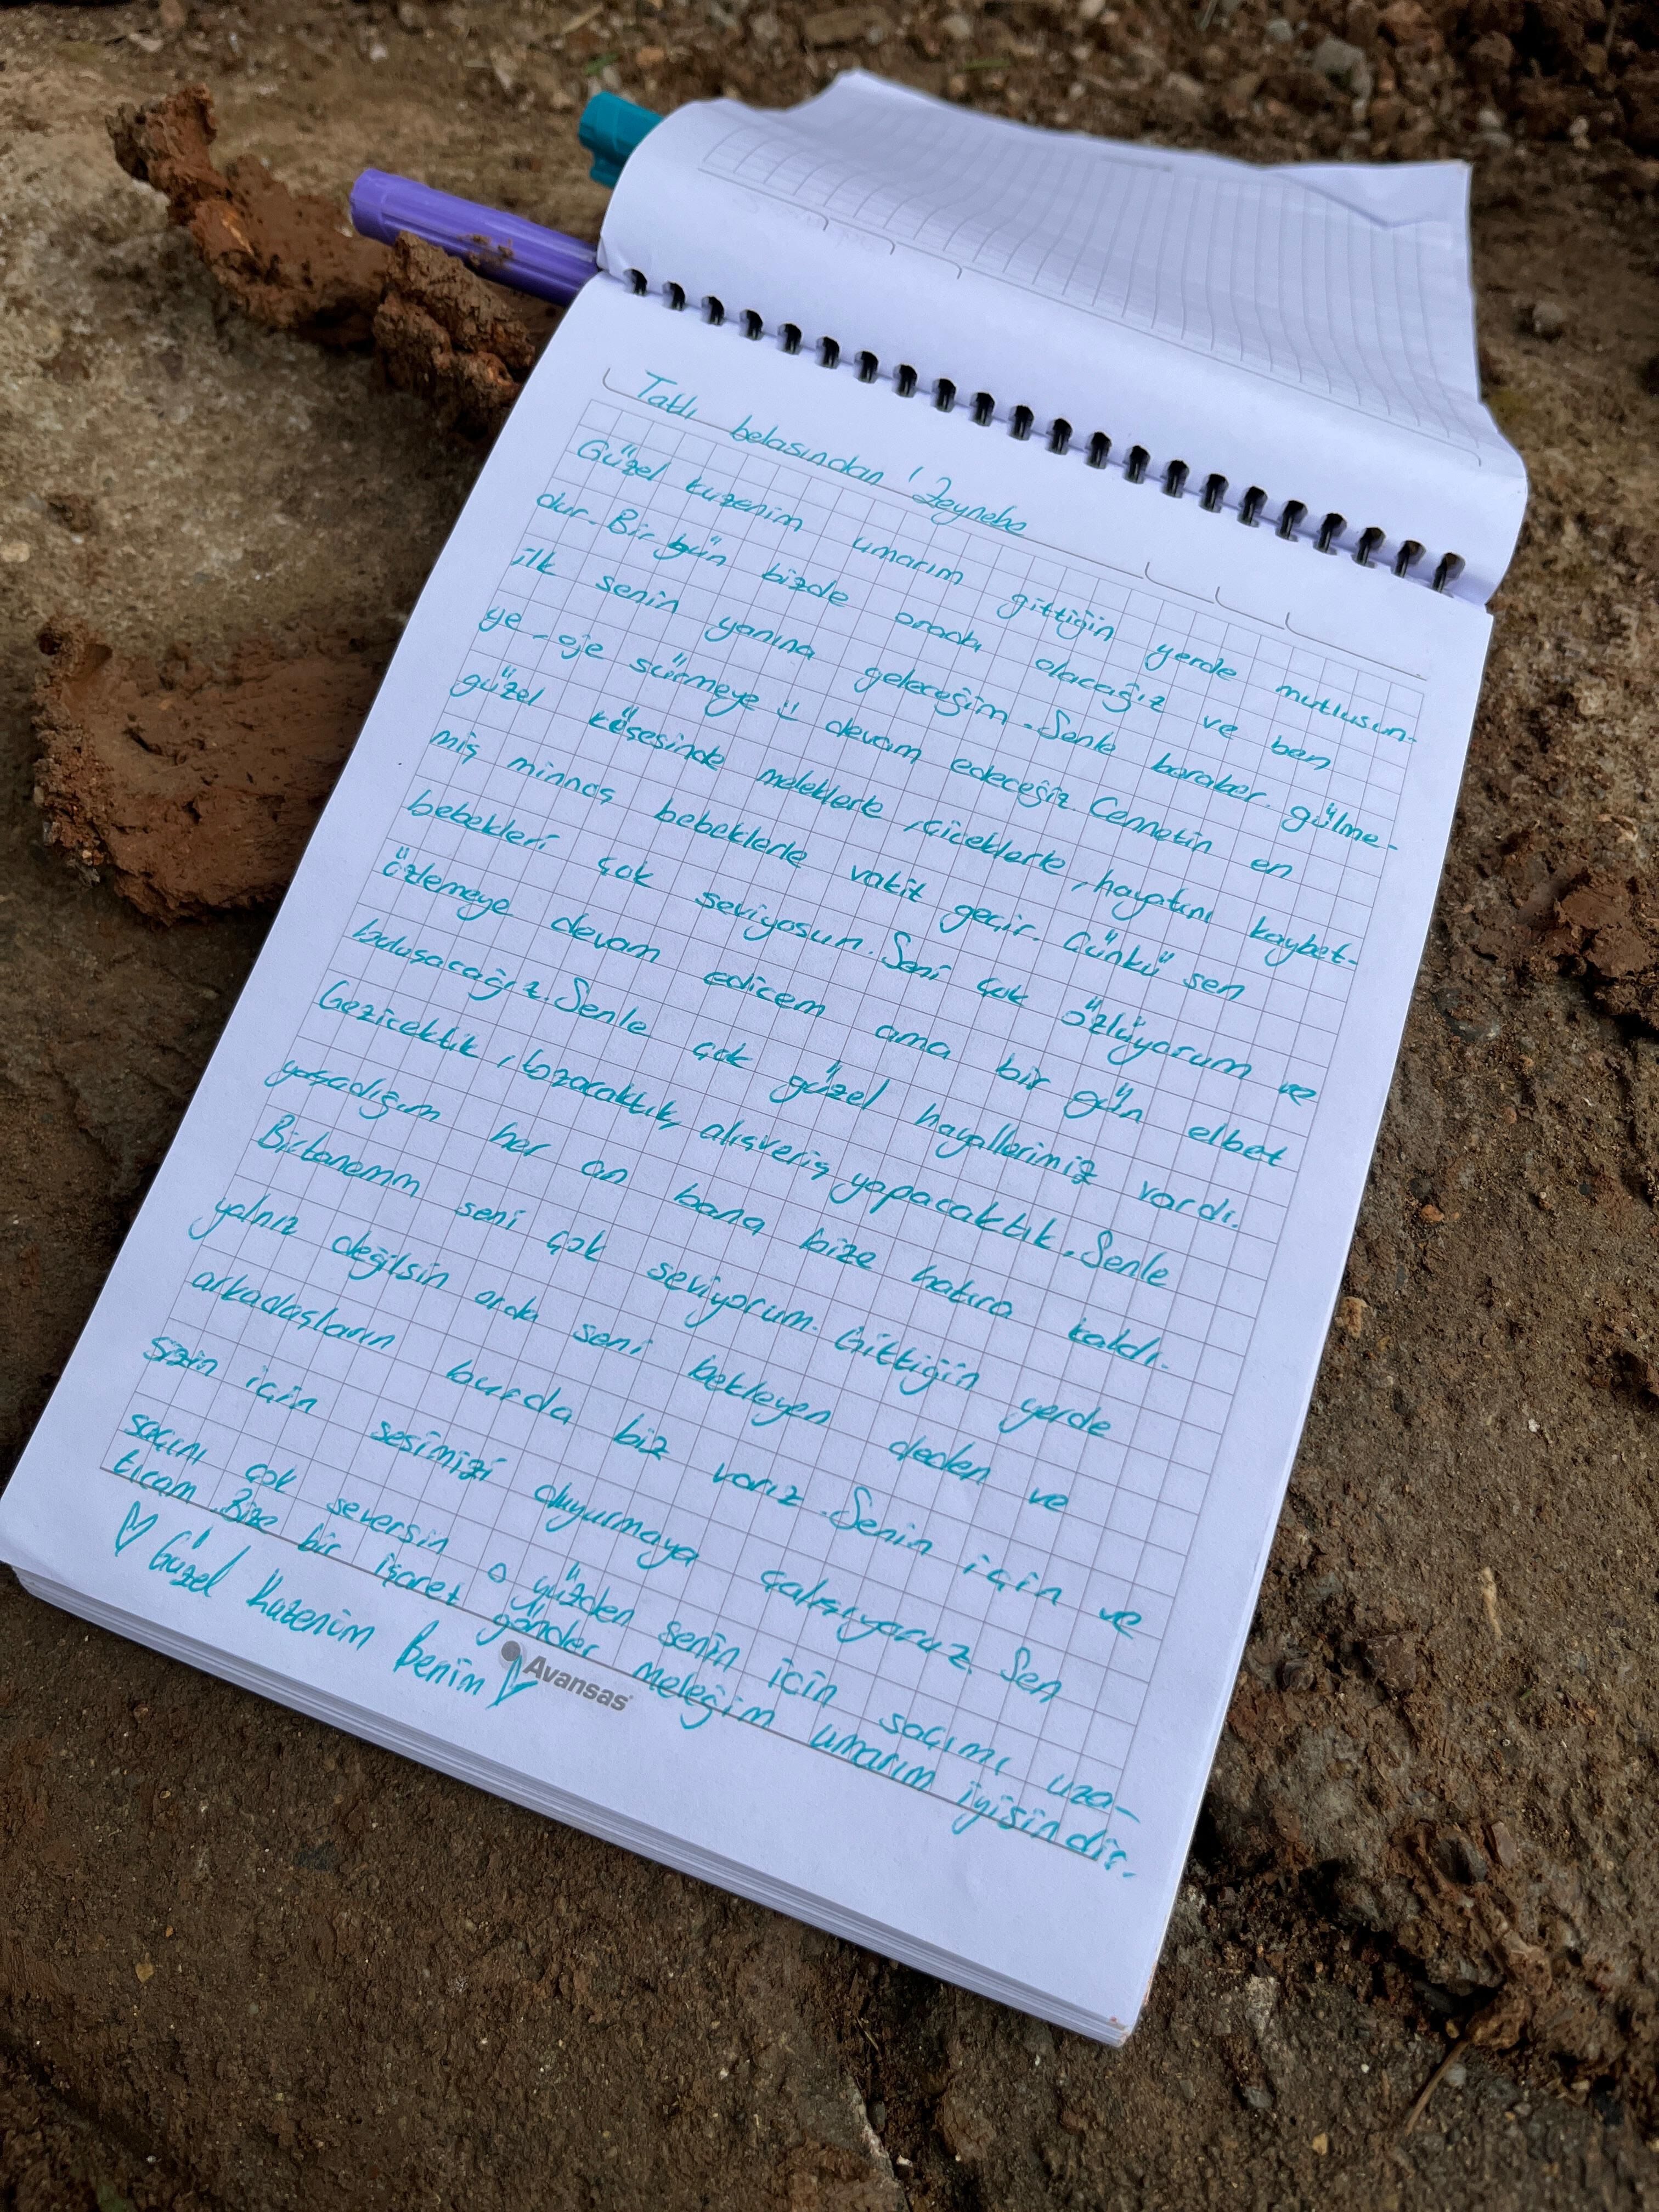 Tatlı belasından ' Zeynebe
Güzel kuzenim umarım gittiğin yerde mutlusun-
dur. Bir gün bizde orada olacağız ve ben
ilk senin yanına geleceğim. Senle beraber gülme-
ye - oje sürmeye devam edeceğiz Cennetin en
güzel köşesinde meleklerle, çiceklerle, hayatını kaybet-
miş minnoş bebeklerle vakit geçir. Çünkü sen
bebekleri çok seviyosun. Seni çok özlüyorum ve
özlemeye devam edicem ama bir gün elbet
buluşacağız. Senle çok güzel hayallerimiz vardı.
Gezicektik, tozacaktık, alışveriş yapacaktık. Senle
yaşadığım her an bana bize hatıra kaldı.
Bi'tanemm seni çok seviyorum. Gittiğin yerde
yalnız değilsin orda seni bekleyen deden ve
arkadaşların burda biz varız. Senin için ve
sizin için sesimizi duyurmaya çalışıyoruz. Sen
saçını çok seversin o yüzden senin için saçımı uza-
tıcam. Bize bir işaret gönder meleğim umarım iyisindir.
♡ Güzel kuzenim benim ♡
Avansas